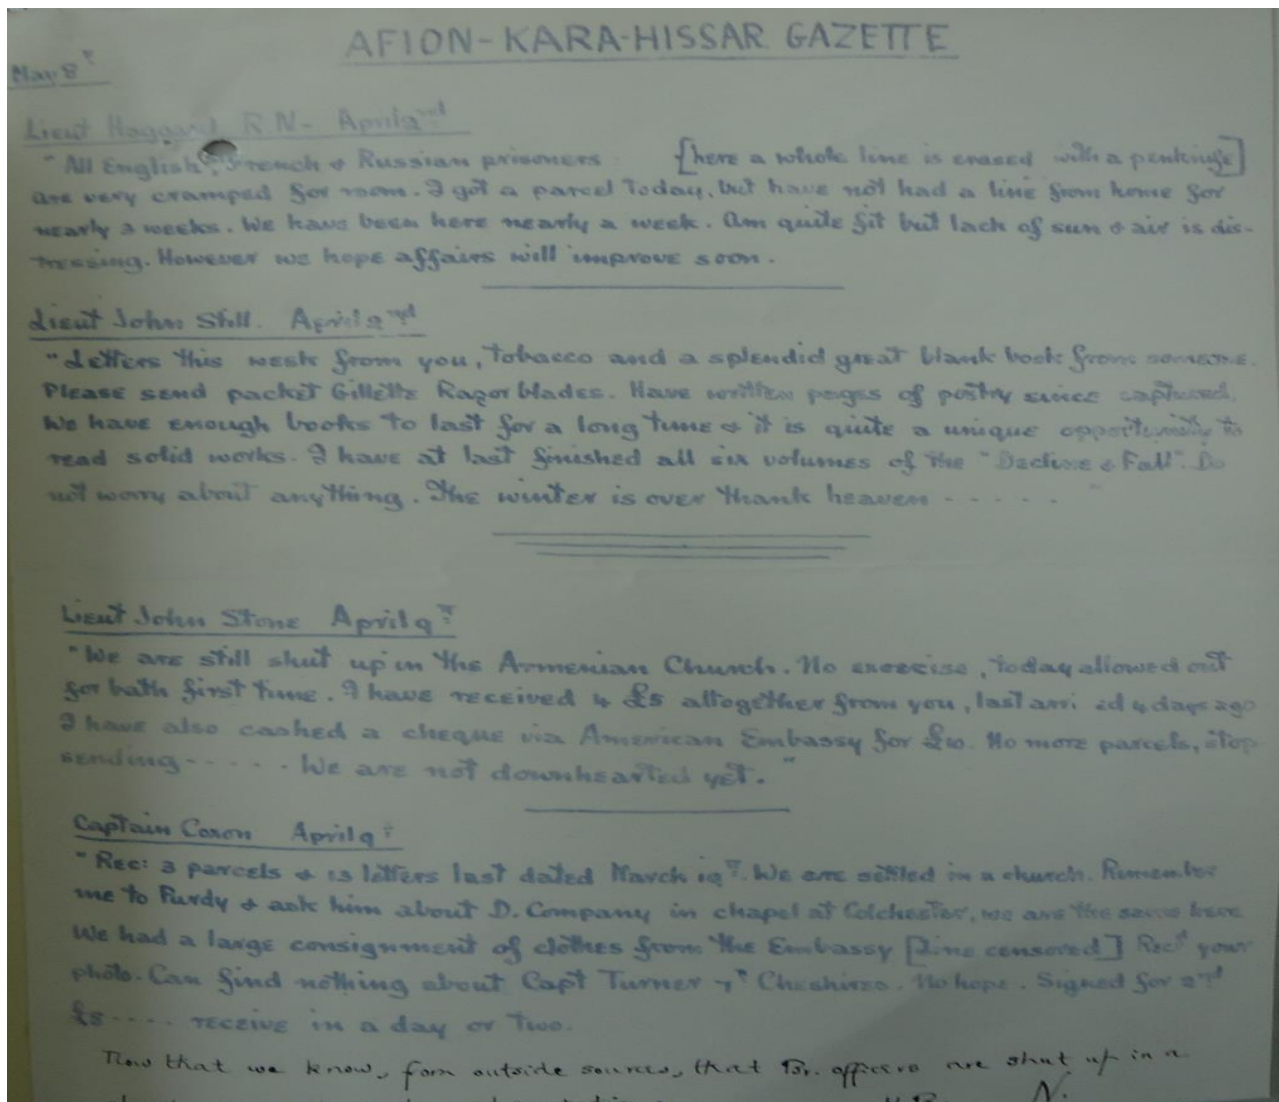 AFION-KARA-HISSAR GAZETTE
May 8th
Lieut Haggard R.N- April 2nd
"All English, French & Russian prisoners [here a whole line is erased with a penknife]
are very cramped for room. I got a parcel today, but have not had a line from home for
nearly 3 weeks. We have been here nearly a week. Am quite fit but lack of sun & air is dis-
tressing. However we hope affairs will improve soon.
Lieut John Still. April 2nd
"Letters this week from you, tobacco and a splendid great blank book from someone.
Please send packet Gillette Razor blades. Have written pages of poetry since captured.
We have enough books to last for a long time & it is quite a unique opportunity to
read solid works. I have at last finished all six volumes of the "Decline & Fall". Do
not worry about anything. The winter is over thank heaven - - - - - "
Lieut John Stone April 9th
"We are still shut up in the Armenian Church. No exercise, today allowed out
for bath first time. I have received 4 £5 altogether from you, last arri ed 4 days ago
I have also cashed a cheque via American Embassy for £10. No more parcels, stop
sending - - - - - We are not downhearted yet."
Captain Coxon April 9th
"Rec: 3 parcels & 13 letters last dated March 19th. We are settled in a church. Remember
me to Purdy & ask him about D. Company in chapel at Colchester, we are the same here
We had a large consignment of clothes from the Embassy [Line censored] Recd your
photo. Can find nothing about Capt Turner 7th Cheshires. No hope. Signed for 2nd
£5 - - - - receive in a day or two.
Now that we know, from outside sources, that Br. officers are shut up in a